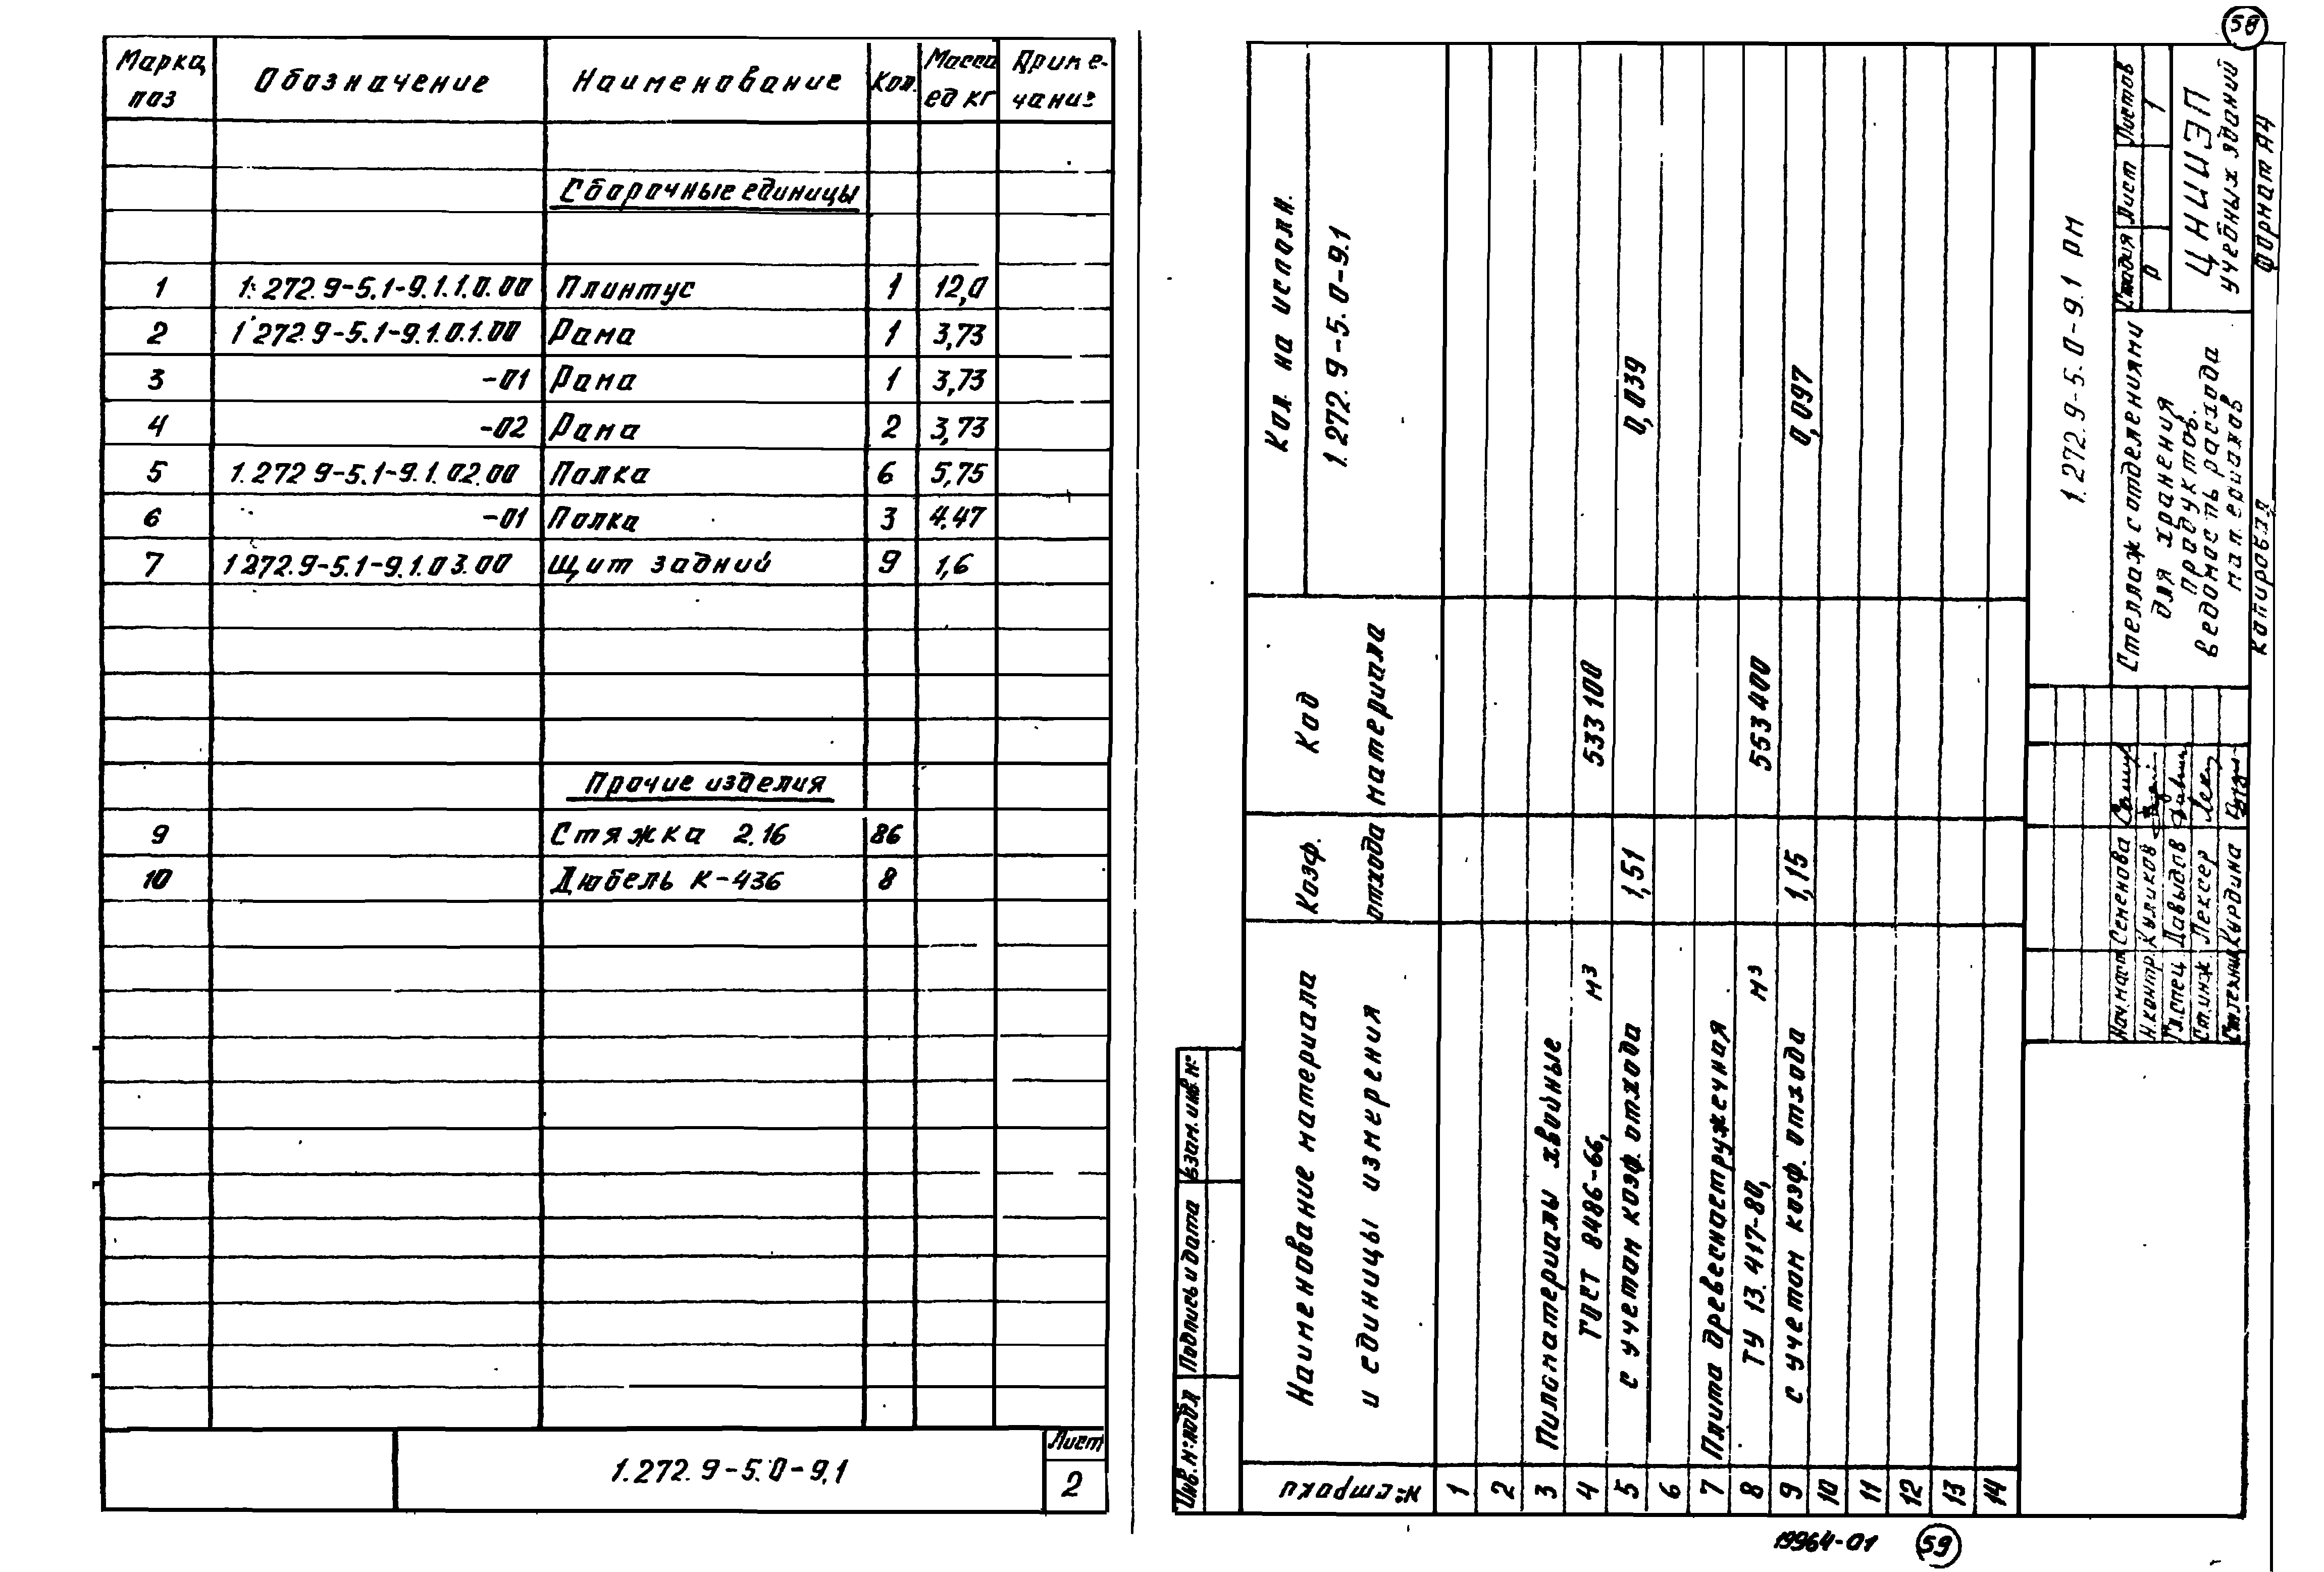 Марка, поз | Обозначение | Наименование | Кол. | Масса ед кг | Приме-чание
Сборочные единицы
1 | 1.272.9-5.1-9.1.1.0.00 | Плинтус | 1 | 12,0
2 | 1 272.9-5.1-9.1.0.1.00 | Рама | 1 | 3,73
3 | -01 | Рама | 1 | 3,73
4 | -02 | Рама | 2 | 3,73
5 | 1.272 9-5.1-9.1.02.00 | Полка | 6 | 5,75
6 | -01 | Полка | 3 | 4.47
7 | 1 272.9-5.1-9.1.03.00 | Щит задний | 9 | 1,6
Прочие изделия
9 | Стяжка 2.16 | 86
10 | Дюбель К-436 | 8
1.272.9-5.0-9.1
Лист
2
58
№ строки | Наименование материала и единицы измерения | Коэф. отхода | Код материала | Кол на исполн.
1.272.9-5.0-9.1
1
2
3 | Пиломатериалы хвойные
4 | ГОСТ 8486-66, м3 | 533100
5 | с учетом коэф. отхода | 1,51 | 0,039
6
7 | Плита древесностружечная
8 | ТУ 13.417-80, м3 | 553400
9 | с учетом коэф. отхода | 1,15 | 0,097
10
11
12
13
14
1.272.9-5.0-9.1 РМ
Нач.маст Семенова
Н.контр. Куликов
Гл.спец. Давыдов
Ст.инж. Лексер
Ст.техник Курдина
Стеллаж с отделениями
для хранения
продуктов.
Ведомость расхода
материалов
Стадия | Лист | Листов
Р | 1
ЦНИИЭП
учебных зданий
Копировал
Формат А4
Инв.№ подл
Подпись и дата
Взам. инв. №
19964-01
59